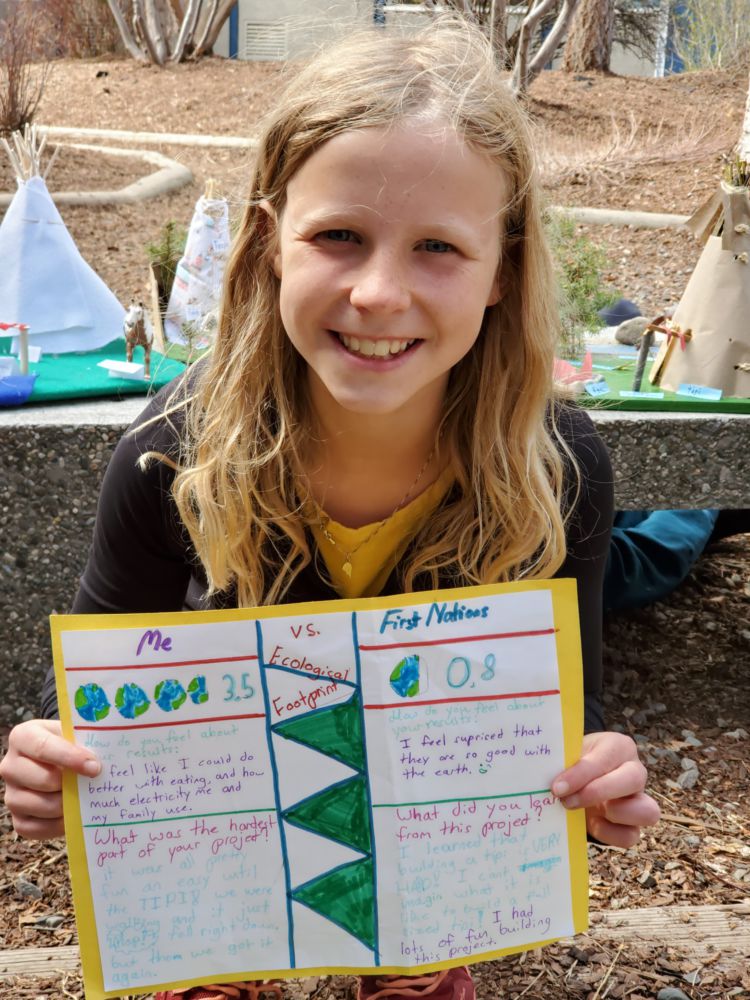 Me
3.5
How do you feel about
your results:
I feel like I could do
better with eating, and how
much electricity me and
my family use.
What was the hardest
part of your project?
it was all pretty
fun an easy until
the TIPI! we were
walking and it just
fell right down.
but them we got it
again.
vs.
Ecological
Footprint
First Nations
0,8
How do you feel about
your results:
I feel suprised that
they are so good with
the earth.
What did you lear
from this project?
I learned that
building a tipi is VERY
HARD! I cant
imagin what it is
like to build a full
sized tipi! I had
lots of fun building
this project.